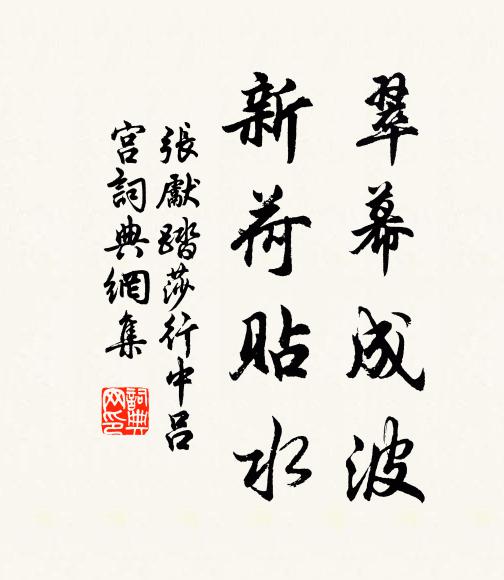 翠幕成波
新荷貼水
張獻踏莎行中呂
宮詞典網集
詞典
网印